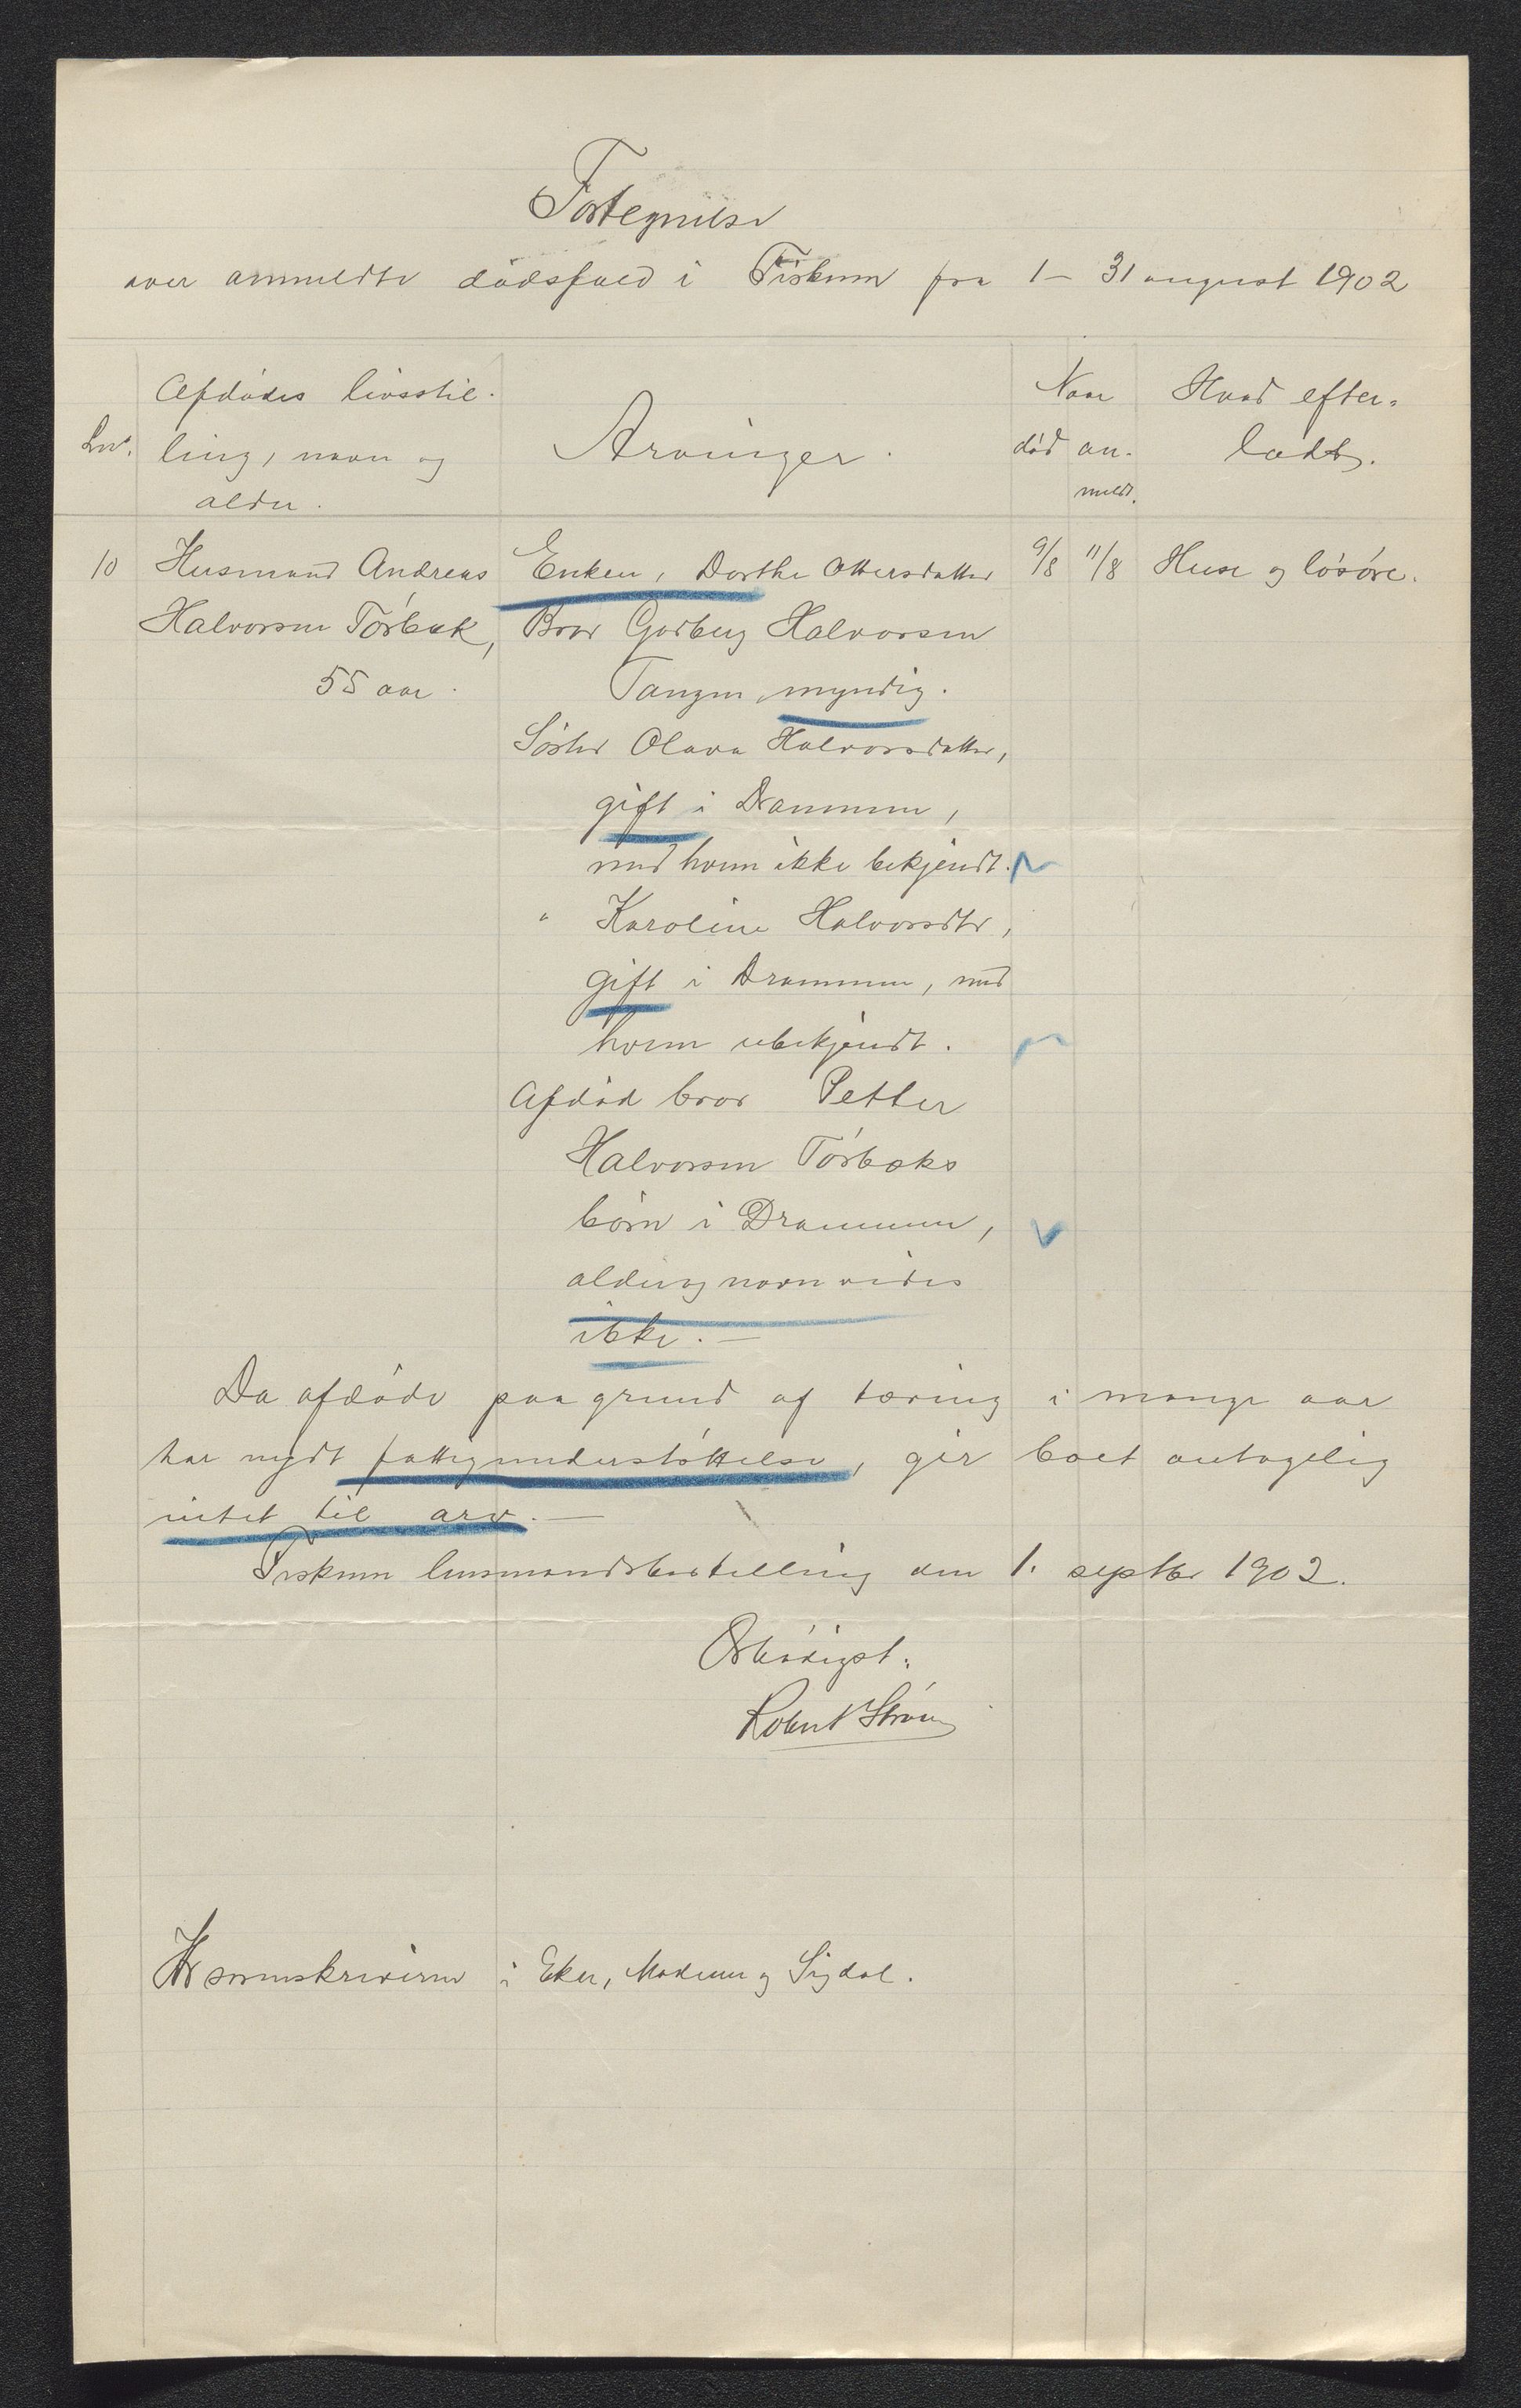 Fortegnelse
over anmeldte dødsfald i Fiskum fra 1 – 31 august 1902
Afdødes livsstil-
Lnr. ling, navn og
alder.
Arvinger.
Naar
død an-
meldt.
Hvad efter-
ladt.
10 Husmand Andreas Enken, Dorthe Ottersdatter 9/8 11/8 Huse og løsøre.
Halvorsen Tørbæk, Bror Gudberg Halvorsen
55 aar. Tangen, myndig.
Søster Olava Halvorsdatter,
gift i Drammen,
med hvem ikke bekjendt.
" Karoline Halvorsdtr,
gift i Drammen, med
hvem ubekjendt.
Afdød bror Petter
Halvorsen Tørbæks
børn i Drammen,
alder og navn vides
ikke. —
Da afdøde paa grund af tæring i mange aar
har nydt fattigunderstøttelse, gir boet antagelig
intet til arv. —
Fiskum lensmandsbestilling den 1. septbr 1902.
Ærbødigst:
Robert Strøm
Hr sorenskriveren i Eker, Modum og Sigdal.